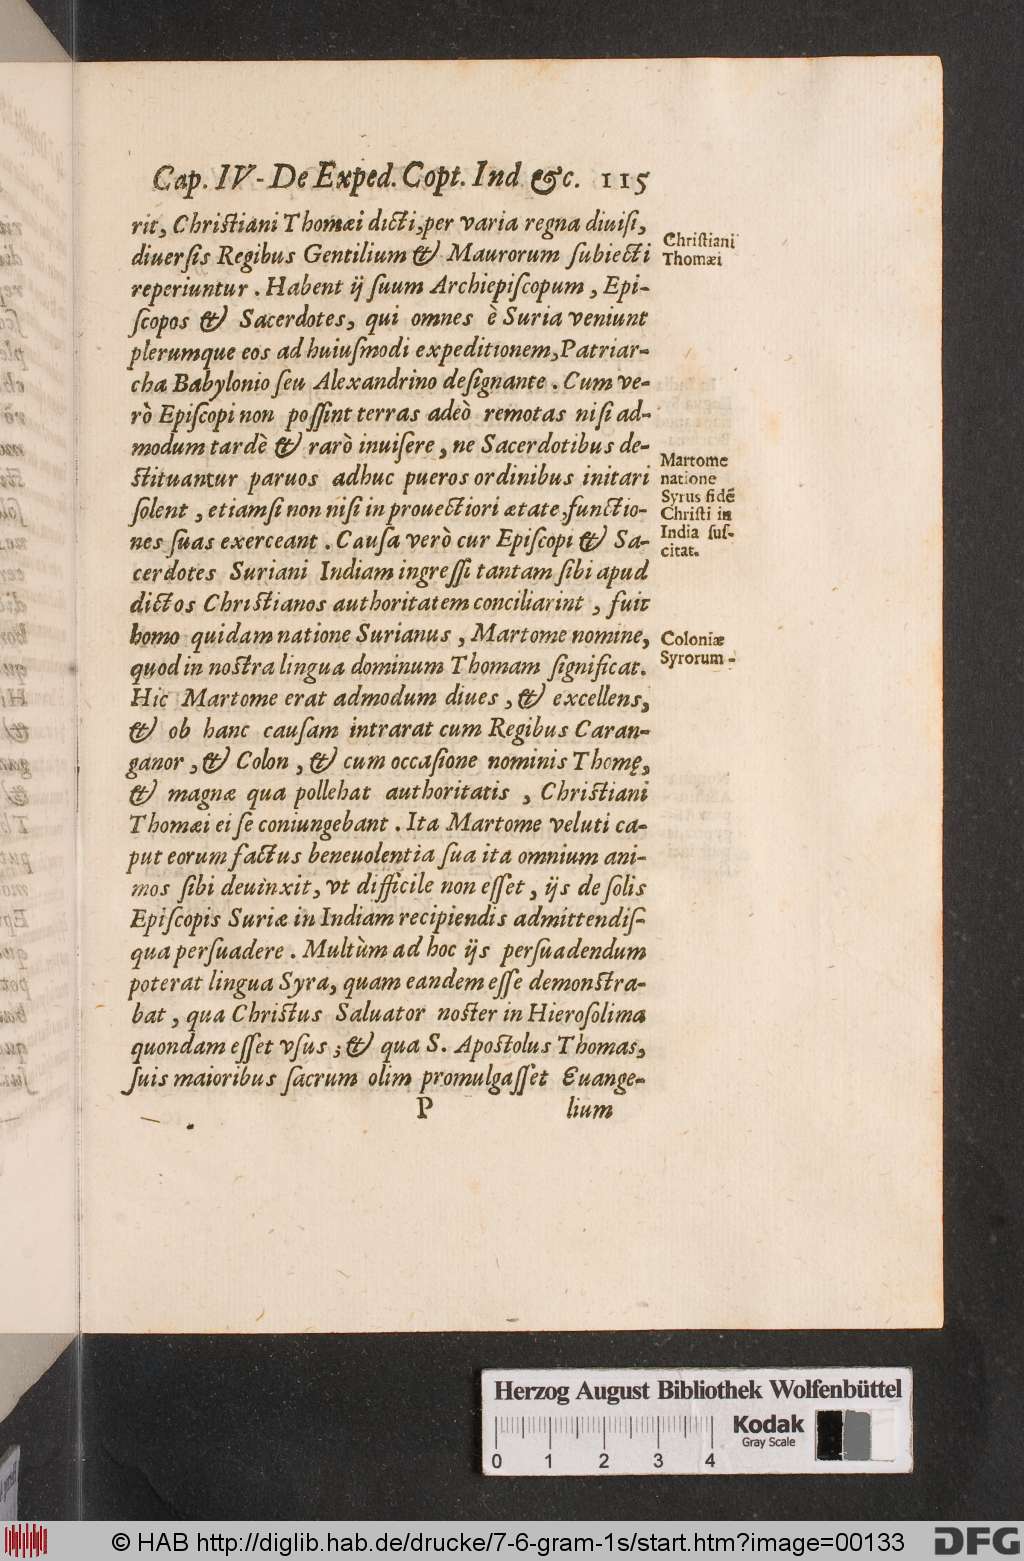 Cap. IV - De Exped. Copt. Ind &c. 115
rit, Christiani Thomæi dicti, per varia regna diuisi,
diuersis Regibus Gentilium & Maurorum subiecti
reperiuntur. Habent ij suum Archiepiscopum, Epi-
scopos & Sacerdotes, qui omnes è Suria veniunt
plerumque eos ad huiusmodi expeditionem, Patriar-
cha Babylonio seu Alexandrino designante. Cum ve-
rò Episcopi non possint terras adeò remotas nisi ad-
modum tardè & rarò inuisere, ne Sacerdotibus de-
stituantur paruos adhuc pueros ordinibus initari
solent, etiamsi non nisi in prouectiori ætate, functio-
nes suas exerceant. Causa verò cur Episcopi & Sa-
cerdotes Suriani Indiam ingressi tantam sibi apud
dictos Christianos authoritatem conciliarint, fuit
homo quidam natione Surianus, Martome nomine,
quod in nostra lingua dominum Thomam significat.
Hic Martome erat admodum diues, & excellens,
& ob hanc causam intrarat cum Regibus Caran-
ganor, & Colon, & cum occasione nominis Thomę,
& magnæ qua pollebat authoritatis, Christiani
Thomæi ei se coniungebant. Ita Martome veluti ca-
put eorum factus beneuolentia sua ita omnium ani-
mos sibi deuinxit, vt difficile non esset, ijs de solis
Episcopis Suriæ in Indiam recipiendis admittendis-
qua persuadere. Multùm ad hoc ijs persuadendum
poterat lingua Syra, quam eandem esse demonstra-
bat, qua Christus Saluator noster in Hierosolima
quondam esset vsus; & qua S. Apostolus Thomas,
suis maioribus sacrum olim promulgasset Euange-
P lium
Christiani
Thomæi
Martome
natione
Syrus fidē
Christi in
India sus-
citat.
Coloniæ
Syrorum -
Herzog August Bibliothek Wolfenbüttel
0 1 2 3 4
Kodak
Gray Scale
© HAB http://diglib.hab.de/drucke/7-6-gram-1s/start.htm?image=00133
DFG